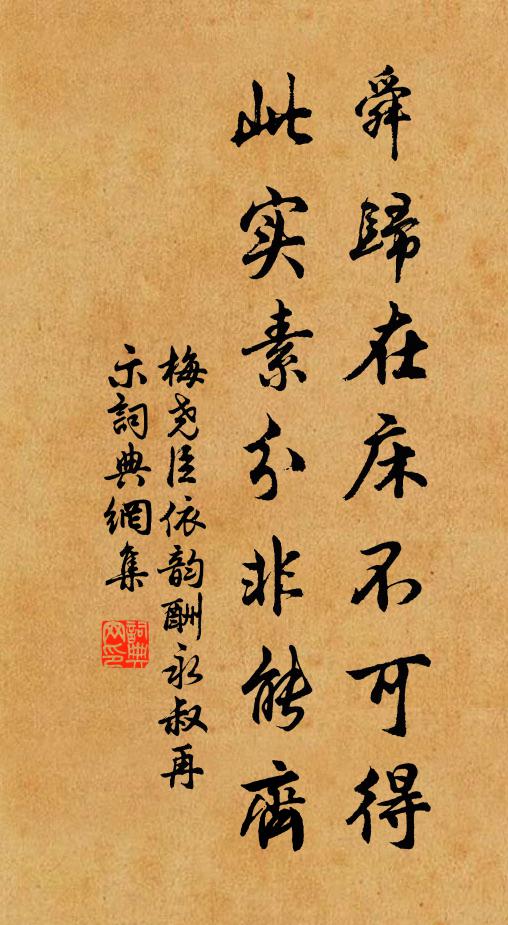 舜歸在床不可得
此实素分非能齊
梅尧臣依韵酬永叔再
示詞典網集
詞典
网印